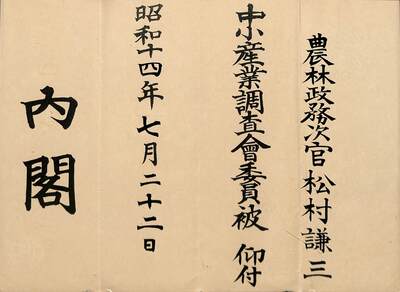 農林政務次官 松村謙三
中小産業調査會委員被 仰付
昭和十四年七月二十二日
內閣